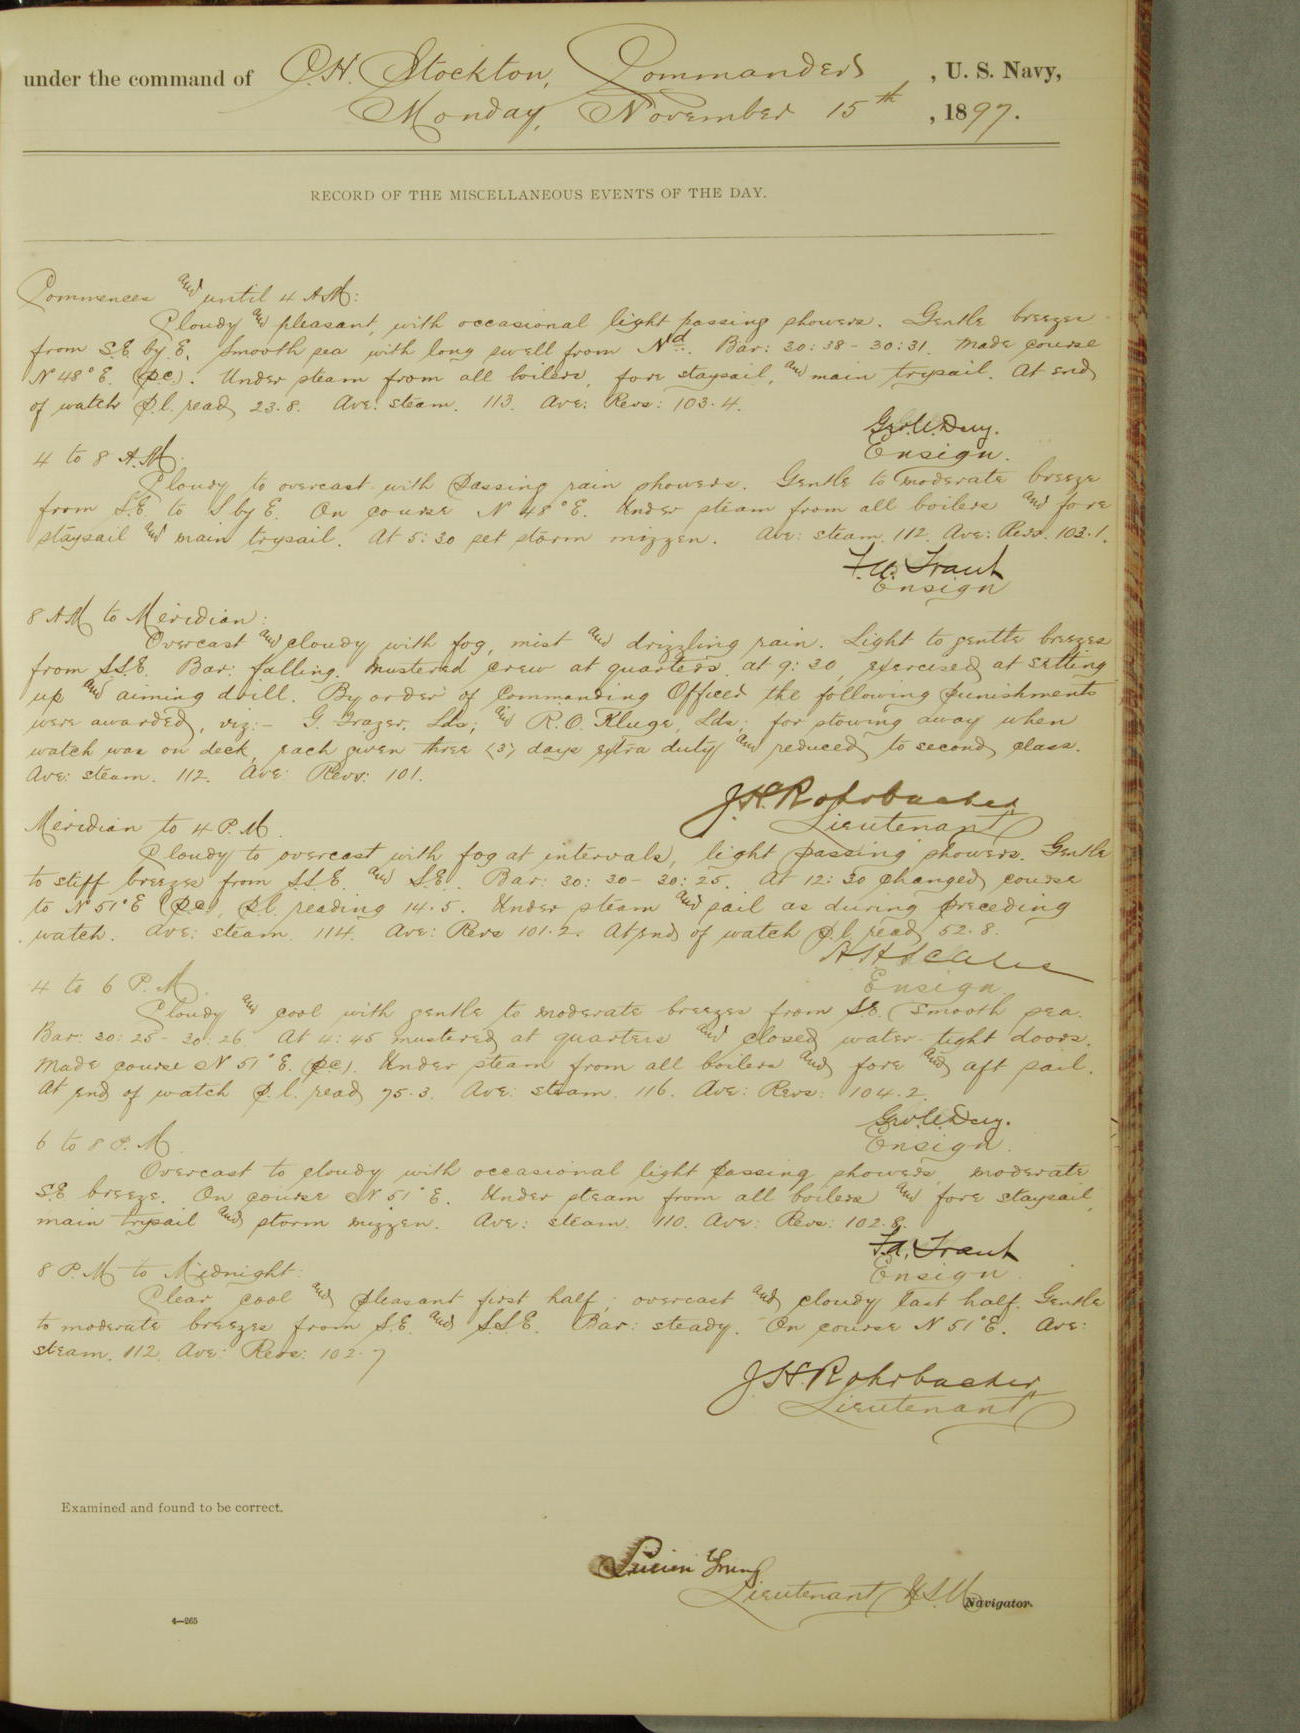 under the command of C. H. Stockton, Commander, U. S. Navy,
Monday, November 15th, 1897.
RECORD OF THE MISCELLANEOUS EVENTS OF THE DAY.
Commences and until 4 A.M:
Cloudy and pleasant, with occasional light passing showers. Gentle breezes
from S.E. by E. Smooth sea with long swell from Nd. Bar: 30:38 - 30:31. Made course
N 48° E. (p.c.). Under steam from all boilers, fore staysail, and main trysail. At end
of watch p.l. read 23.8. Ave: steam. 113. Ave: Revs: 103.4.
Ensign.
4 to 8 A.M.
Cloudy to overcast with passing rain showers. Gentle to moderate breeze
from S.E. to S by E. On course N 48° E. Under steam from all boilers and fore
staysail and main trysail. At 5:30 set storm mizzen. Ave: steam. 112. Ave: Revs. 103.1.
Ensign
8 A.M. to Meridian:
Overcast and cloudy with fog, mist and drizzling rain. Light to gentle breezes
from S.S.E. Bar: falling. Mustered crew at quarters at 9:30, exercised at setting
up and aiming drill. By order of Commanding Officer the following punishments
were awarded, viz:- G. Frazer, Lds; and R.O. Kluge, Lds; for stowing away when
watch was on deck, each given three (3) days extra duty and reduced to second class.
Ave: steam. 112. Ave: Revs: 101.
J. H. Rohrbacher
Lieutenant
Meridian to 4 P.M.
Cloudy to overcast with fog at intervals, light passing showers. Gentle
to stiff breezes from S.S.E. and S.E. Bar: 30:30 - 30:25. At 12:30 changed course
to N 51° E (p.c.), p.l. reading 14.5. Under steam and sail as during preceding
watch. Ave: steam. 114. Ave: Revs 101.2. At end of watch p.l. read 52.8.
Ensign
4 to 6 P.M.
Cloudy and cool with gentle to moderate breezes from S.E. Smooth sea.
Bar: 30:25 - 30:26. At 4:45 mustered at quarters and closed water-tight doors.
Made course N 51° E. (p.c.). Under steam from all boilers and fore and aft sail.
At end of watch p.l. read 75.3. Ave: steam. 116. Ave: Revs: 104.2.
Ensign.
6 to 8 P.M.
Overcast to cloudy with occasional light passing showers, moderate
S.E. breeze. On course N 51° E. Under steam from all boilers and fore staysail,
main trysail and storm mizzen. Ave: steam. 110. Ave: Revs: 102.8.
Ensign
8 P.M. to Midnight:
Clear cool and pleasant first half; overcast and cloudy last half. Gentle
to moderate breezes from S.E. and S.S.E. Bar: steady. On course N 51° E. Ave:
steam. 112. Ave: Revs: 102.7
J. H. Rohrbacher
Lieutenant
Examined and found to be correct.
Lucien Young
Lieutenant U.S.N. Navigator.
4—265